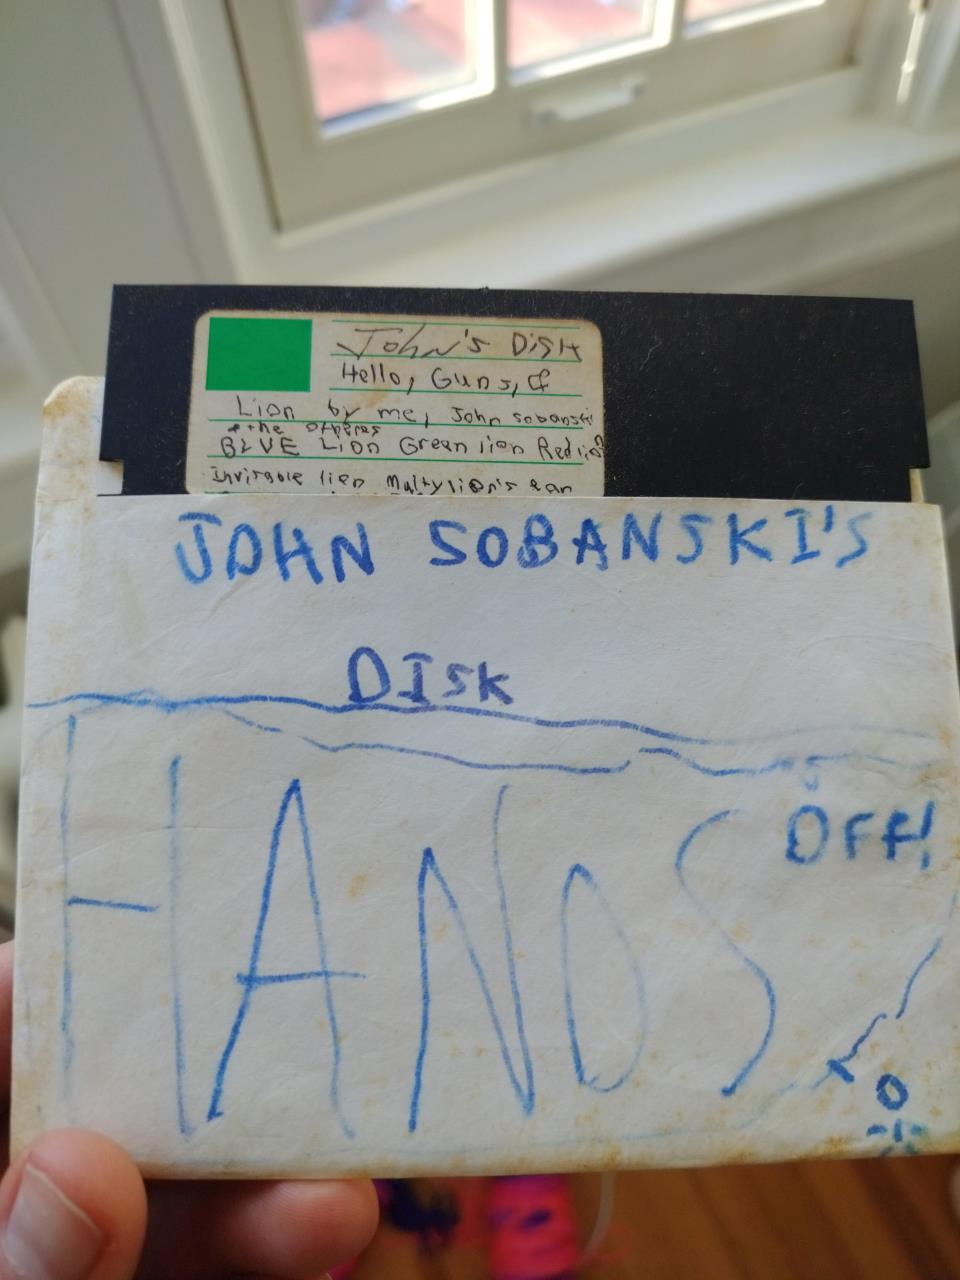 John's Disk
Hello, Guns, &
Lion by me, John Sobanski
the otheres
BLUE Lion Green lion Red lion
Invisable lien Maltylion's ean
JOHN SOBANSKI'S
DISK
HANDS
OFF!